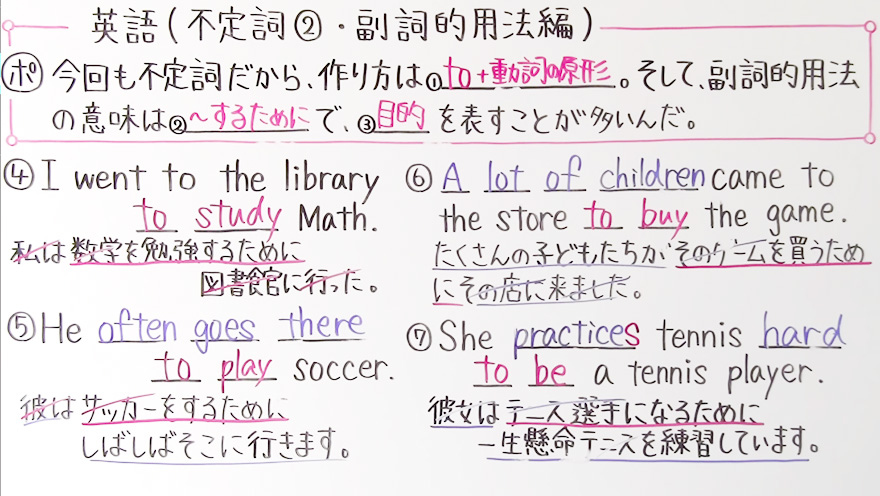 英語(不定詞②・副詞的用法編)
ポ 今回も不定詞だから、作り方は①to+動詞の原形。そして、副詞的用法
の意味は②～するためにで、③目的を表すことが多いんだ。
④I went to the library
to study Math.
私は数学を勉強するために
図書館に行った。
⑤He often goes there
to play soccer.
彼はサッカーをするために
しばしばそこに行きます。
⑥A lot of children came to
the store to buy the game.
たくさんの子どもたちがそのゲームを買うため
にその店に来ました。
⑦She practices tennis hard
to be a tennis player.
彼女はテニス選手になるために
一生懸命テニスを練習しています。